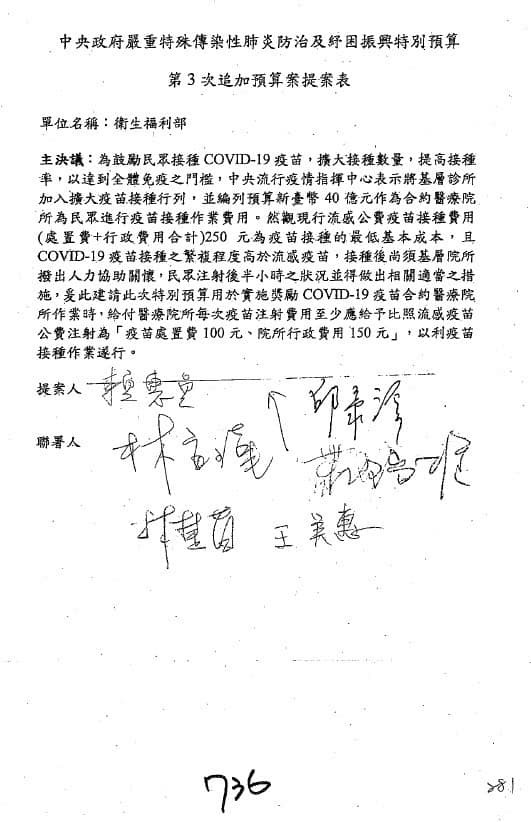 中央政府嚴重特殊傳染性肺炎防治及紓困振興特別預算
第3次追加預算案提案表
單位名稱：衛生福利部
主決議：為鼓勵民眾接種COVID-19疫苗，擴大接種數量，提高接種
率，以達到全體免疫之門檻，中央流行疫情指揮中心表示將基層診所
加入擴大疫苗接種行列，並編列預算新臺幣40億元作為合約醫療院
所為民眾進行疫苗接種作業費用。然觀現行流感公費疫苗接種費用
(處置費+行政費用合計)250元為疫苗接種的最低基本成本，且
COVID-19疫苗接種之繁複程度高於流感疫苗，接種後尚須基層院所
撥出人力協助關懷，民眾注射後半小時之狀況並得做出相關適當之措
施，爰此建請此次特別預算用於實施獎勵COVID-19疫苗合約醫療院
所作業時，給付醫療院所每次疫苗注射費用至少應給予比照流感疫苗
公費注射為「疫苗處置費100元、院所行政費用150元」，以利疫苗
接種作業遂行。
提案人 賴惠員
聯署人
王美惠
736
281